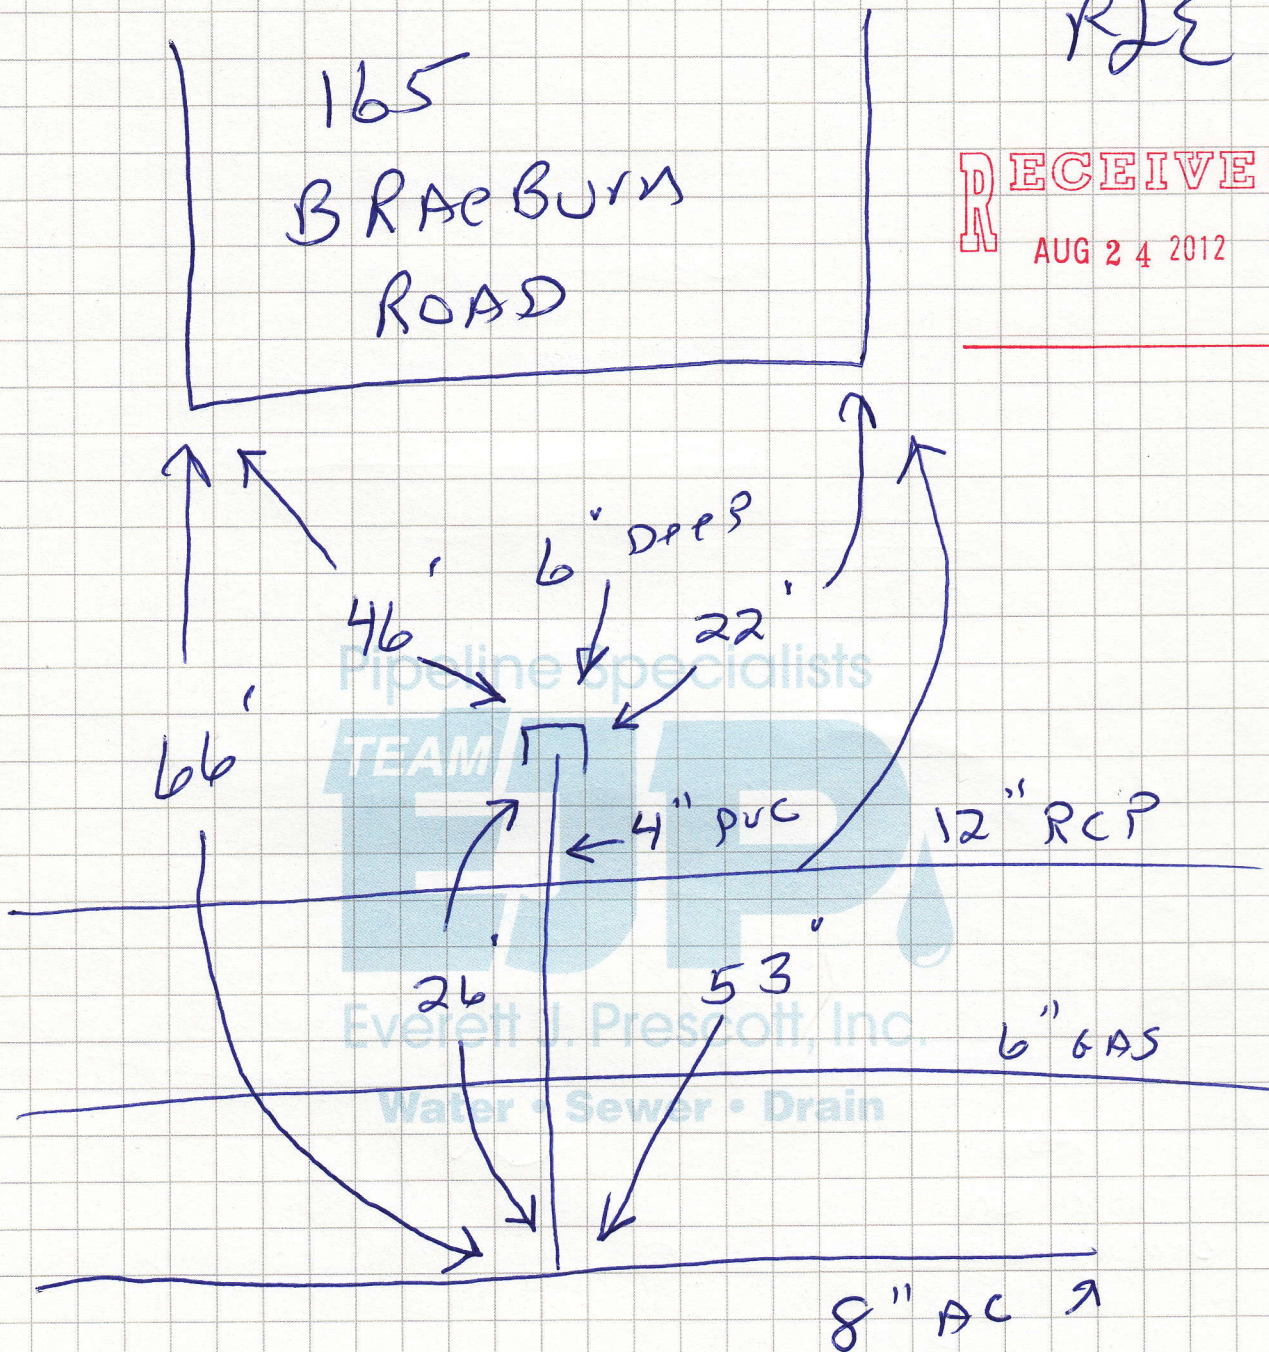 RJE
165
RECEIVE
BRAeBurn
AUG 24 2012
ROAD
6' DeeP
46'
22'
Pipeline Specialists
66'
TEAM
EJP
4" PVC
12" RCP
26'
53"
Everett J. Prescott, Inc.
6" GAS
Water • Sewer • Drain
8" AC